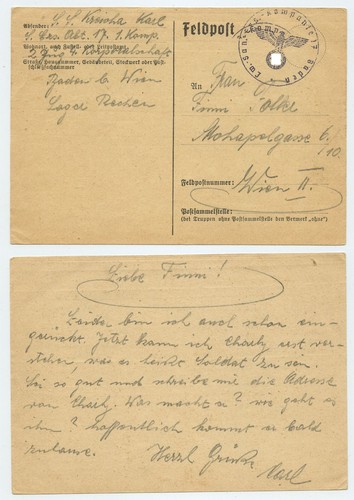 Absender: S. S. Krischa Karl
S. Ers. Abt. 17. 1. Komp.
Wohnort, auch Zustell- oder Leitpostamt
2 Zug 4. Korporalschaft
Straße, Hausnummer, Gebäudeteil, Stockwerk oder Postschließfachnummer
Baden b Wien
Lager
Feldpost
Baden
An Frau
Finni
Mohapelgasse 6/10.
Feldpostnummer: Wien II.
Postsammelstelle:
(bei Truppen ohne Postsammelstelle den Vermerk „ohne“)
Liebe Finni!
Leider bin ich auch schon ein-
gerückt. Jetzt kann ich Charly erst ver-
stehen, was es heißt Soldat zu sein.
Sei so gut und schreibe mir die Adresse
von Charly. Was macht er? wie geht es
ihm? hoffentlich kommt er bald
zuhause.
Herzl Grüße
Karl